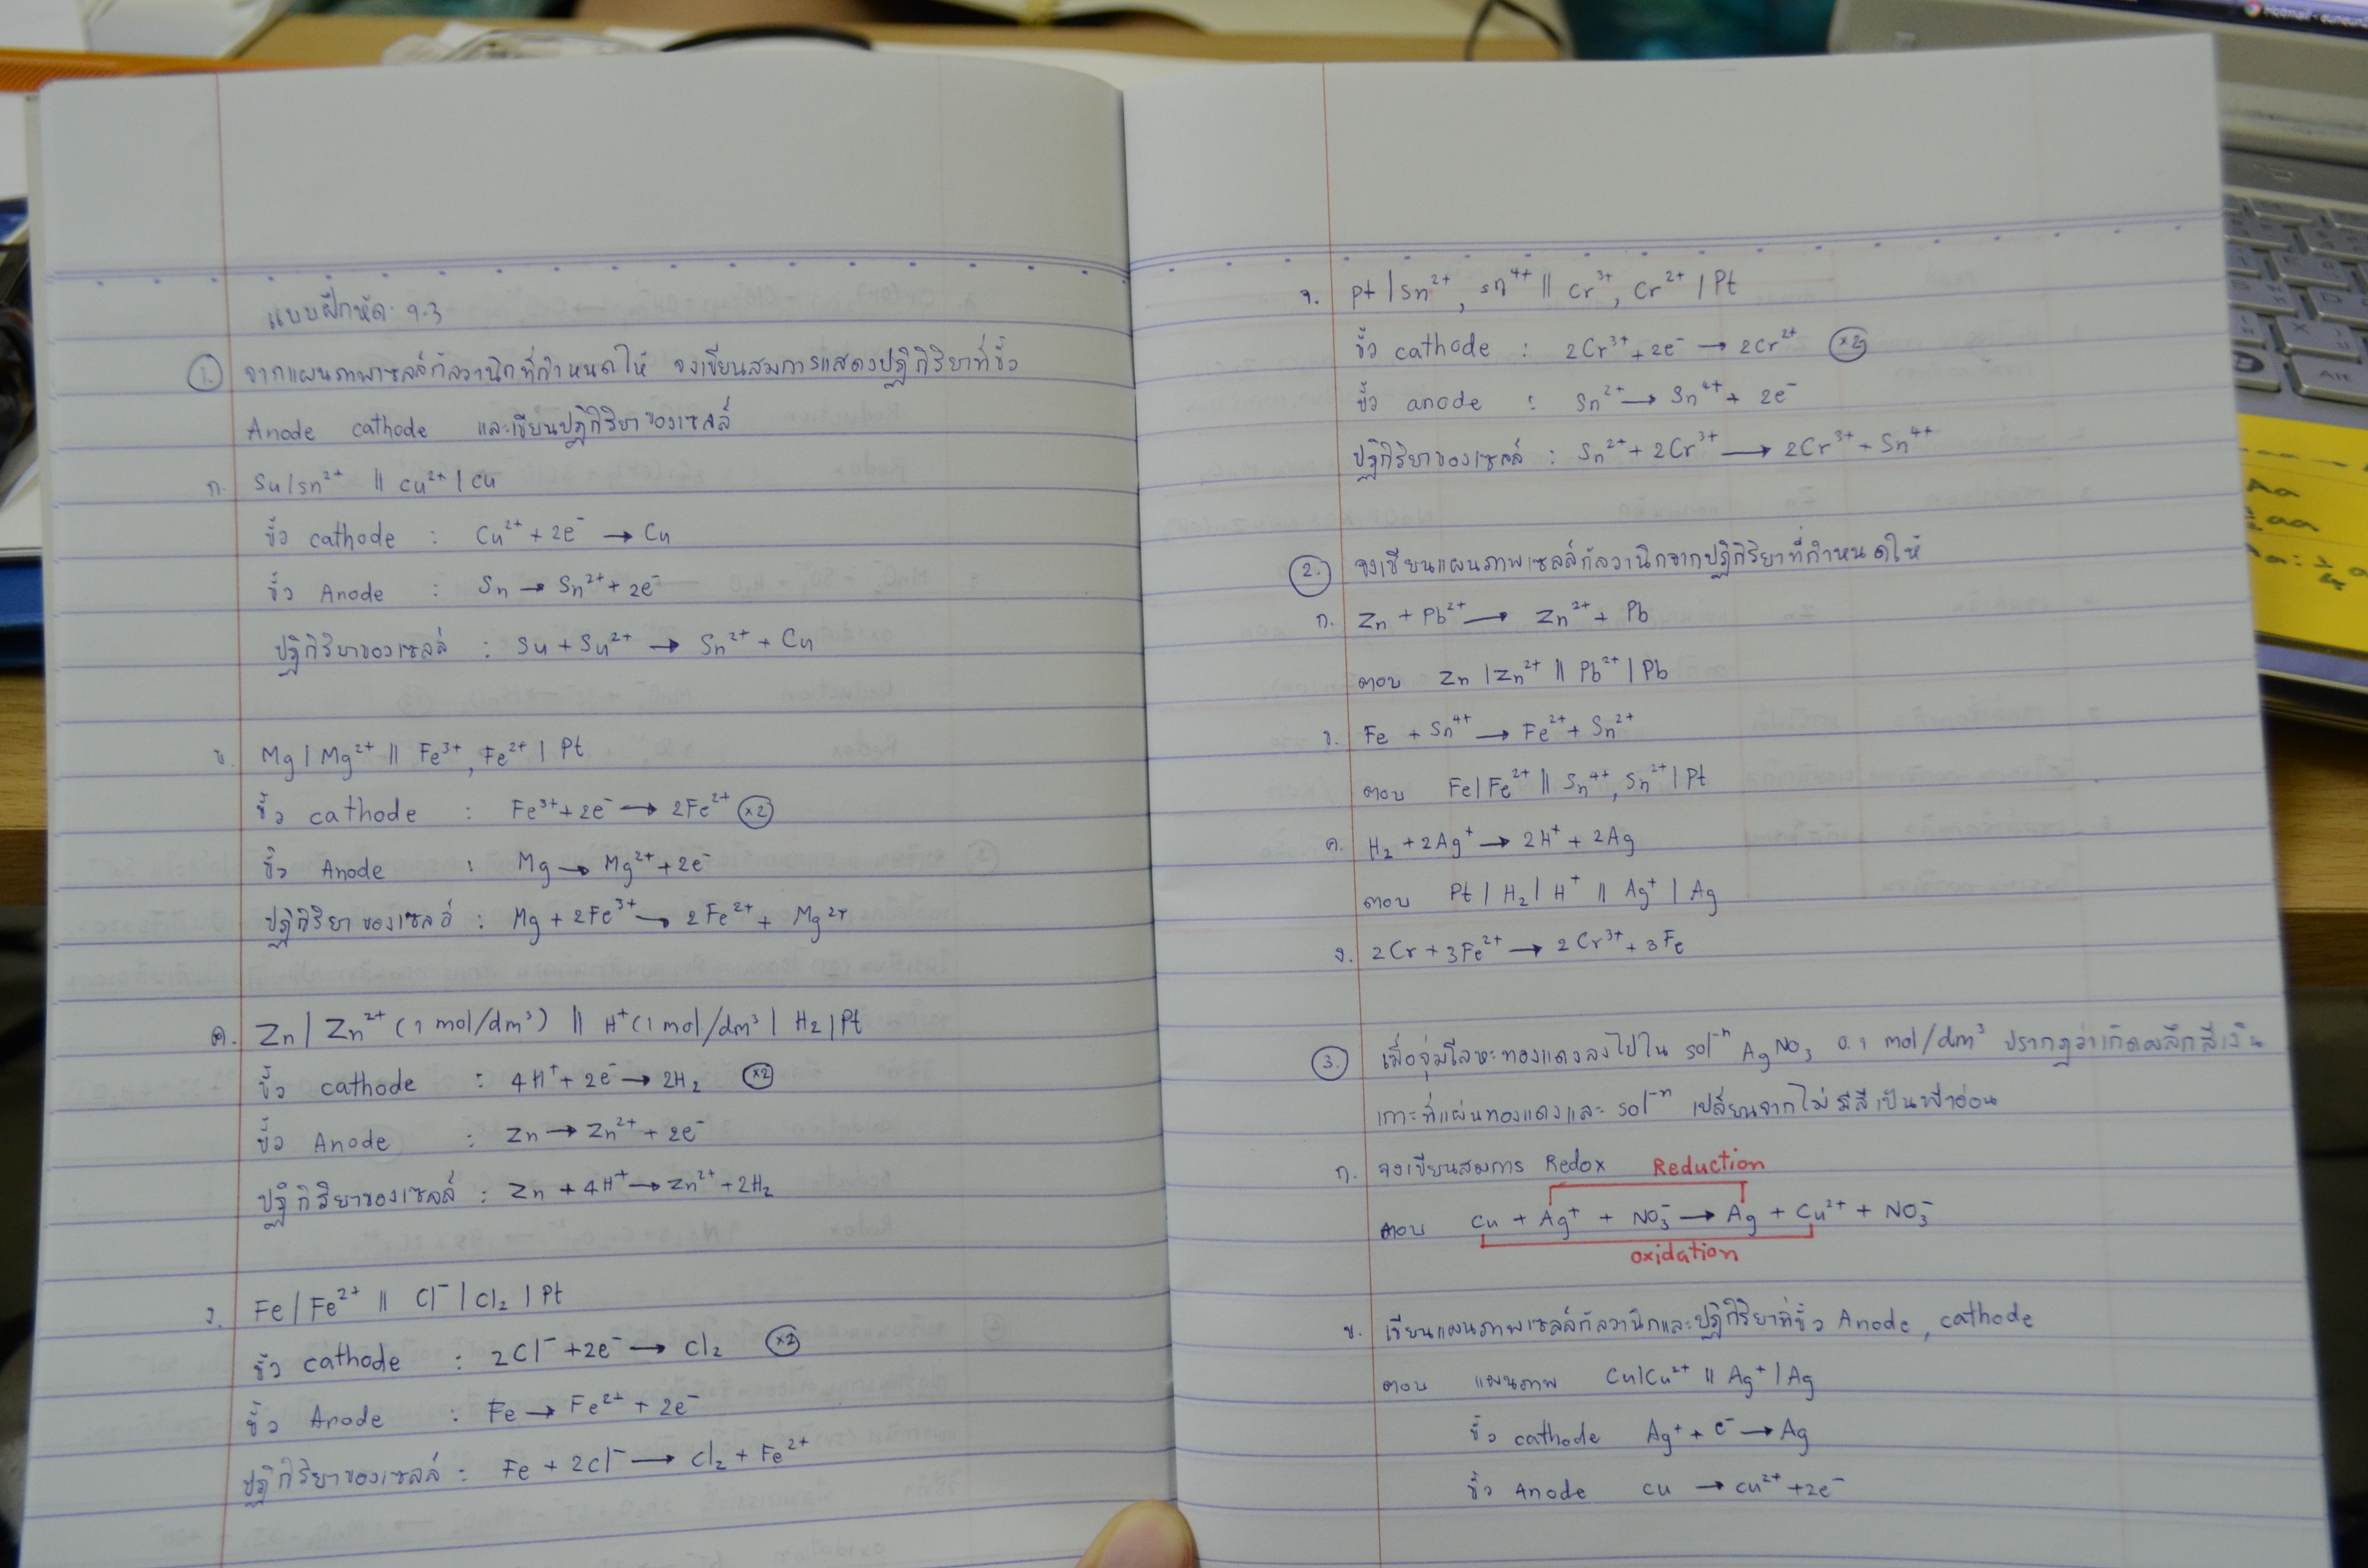 แบบฝึกหัด 9.3
1. จากแผนภาพเซลล์กัลวานิกที่กำหนดให้ จงเขียนสมการแสดงปฏิกิริยาที่ขั้ว
Anode cathode และเขียนปฏิกิริยาของเซลล์
ก. Su/sn²⁺ || cu²⁺ | cu
ขั้ว cathode : Cu²⁺ + 2e⁻ → Cu
ขั้ว Anode : Sn → Sn²⁺ + 2e⁻
ปฏิกิริยาของเซลล์ : Su + Su²⁺ → Sn²⁺ + Cu
ข. Mg | Mg²⁺ || Fe³⁺, Fe²⁺ | Pt
ขั้ว cathode : Fe³⁺ + 2e⁻ → 2Fe²⁺ ×2
ขั้ว Anode : Mg → Mg²⁺ + 2e⁻
ปฏิกิริยาของเซลล์ : Mg + 2Fe³⁺ → 2Fe²⁺ + Mg²⁺
ค. Zn | Zn²⁺ (1 mol/dm³) || H⁺ (1 mol/dm³ | H₂ | Pt
ขั้ว cathode : 4H⁺ + 2e⁻ → 2H₂ ×2
ขั้ว Anode : Zn → Zn²⁺ + 2e⁻
ปฏิกิริยาของเซลล์ : Zn + 4H⁺ → Zn²⁺ + 2H₂
ง. Fe | Fe²⁺ || Cl⁻ | Cl₂ | Pt
ขั้ว cathode : 2Cl⁻ + 2e⁻ → Cl₂ ×2
ขั้ว Anode : Fe → Fe²⁺ + 2e⁻
ปฏิกิริยาของเซลล์ : Fe + 2Cl⁻ → Cl₂ + Fe²⁺
จ. Pt | Sn²⁺, sn⁴⁺ || Cr³⁺, Cr²⁺ | Pt
ขั้ว cathode : 2Cr³⁺ + 2e⁻ → 2Cr²⁺ ×2
ขั้ว anode : Sn²⁺ → Sn⁴⁺ + 2e⁻
ปฏิกิริยาของเซลล์ : Sn²⁺ + 2Cr³⁺ → 2Cr³⁺ + Sn⁴⁺
2. จงเขียนแผนภาพเซลล์กัลวานิกจากปฏิกิริยาที่กำหนดให้
ก. Zn + Pb²⁺ → Zn²⁺ + Pb
ตอบ Zn | Zn²⁺ || Pb²⁺ | Pb
ข. Fe + Sn⁴⁺ → Fe²⁺ + Sn²⁺
ตอบ Fe | Fe²⁺ || Sn⁴⁺, Sn²⁺ | Pt
ค. H₂ + 2Ag⁺ → 2H⁺ + 2Ag
ตอบ Pt | H₂ | H⁺ || Ag⁺ | Ag
ง. 2Cr + 3Fe²⁺ → 2Cr³⁺ + 3Fe
3. เมื่อจุ่มโลหะทองแดงลงไปใน sol⁻ⁿ AgNO₃ 0.1 mol/dm³ ปรากฏว่าเกิดผลึกสีเงิน
เกาะที่แผ่นทองแดงและ sol⁻ⁿ เปลี่ยนจากไม่มีสีเป็นฟ้าอ่อน
ก. จงเขียนสมการ Redox Reduction
ตอบ Cu + Ag⁺ + NO₃⁻ → Ag + Cu²⁺ + NO₃⁻
oxidation
ข. เขียนแผนภาพเซลล์กัลวานิกและปฏิกิริยาที่ขั้ว Anode, cathode
ตอบ แผนภาพ Cu|Cu²⁺ || Ag⁺ | Ag
ขั้ว cathode Ag⁺ + e⁻ → Ag
ขั้ว Anode cu → cu²⁺ + 2e⁻